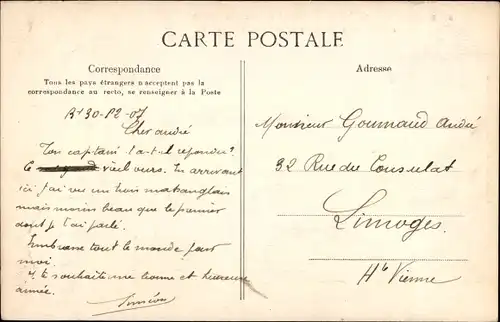 CARTE POSTALE
Correspondance
Tous les pays étrangers n'acceptent pas la
correspondance au recto, se renseigner à la Poste
Adresse
30-12-07
Cher andré
Ton captain t'a-t-il répondu?
Ce vieil ours. En arrivant
ici j'ai vu un
mais moins beau que le premier
dont je t'ai parlé.
Embrasse tout le monde pour
moi.
Je te souhaite une bonne et heureuse
année.
Siméon
Monsieur Goumaud André
32 Rue du Consulat
Limoges.
Hte Vienne